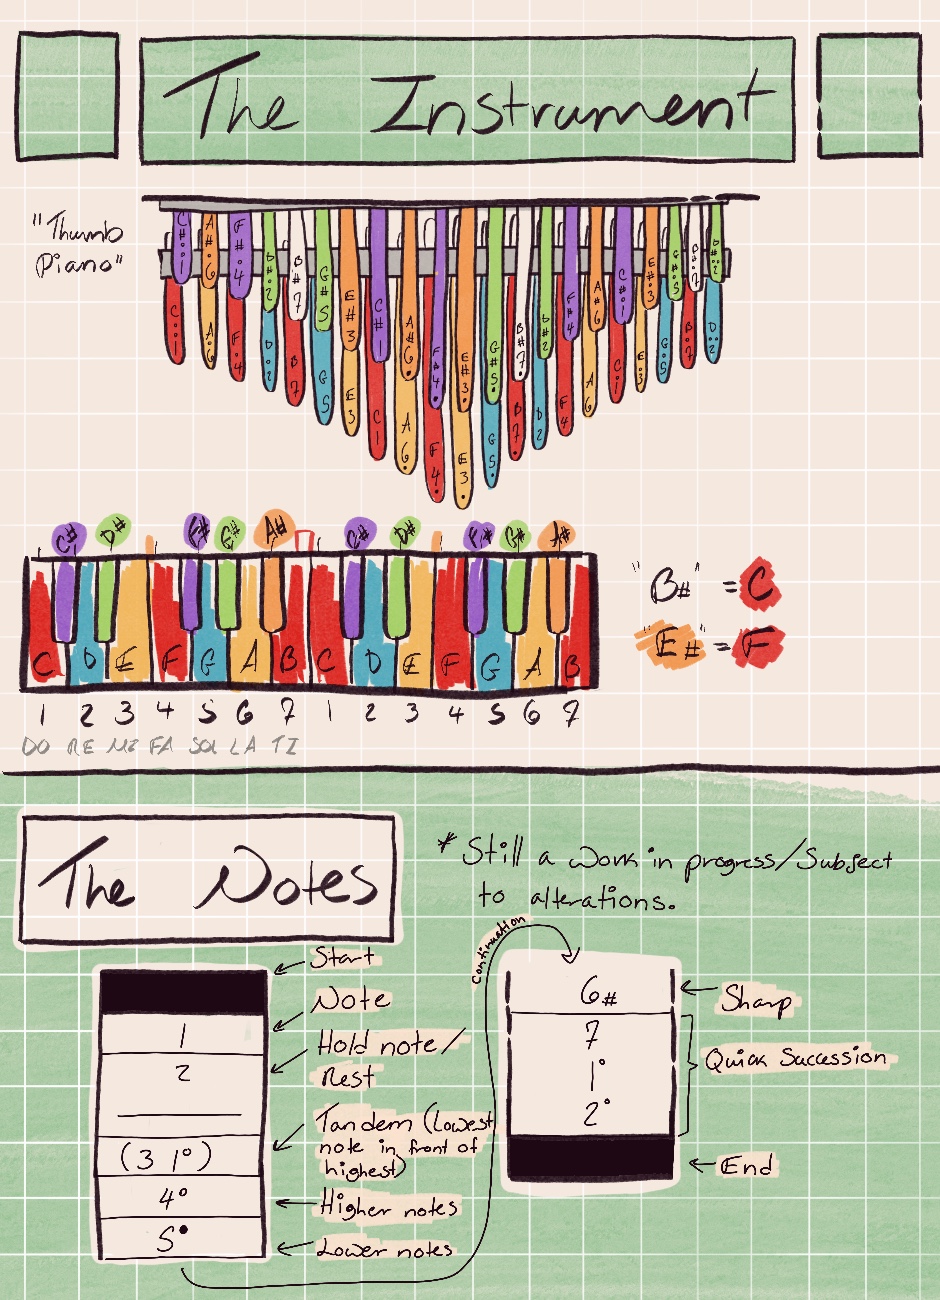 The Instrument
"Thumb
Piano"
C#°°1 A#°6 F#°4 D#°2 B#7 G#5 E#3 C#1 A#6• F#4• E#3• G#5• B#7• D#2 F#4 A#6 C#°1 E#°3 G#°5 B#°7 D#°°2
C°°1 A°6 F°4 D°2 B7 G5 E3 C1 A6• F4• E3• G5• B7• D2 F4 A6 C°1 E°3 G°5 B°7 D°°2
C# D# F# G# A# C# D# F# G# A#
C D E F G A B C D E F G A B
1 2 3 4 5 6 7 1 2 3 4 5 6 7
DO RE MI FA SOL LA TI
"B#" = C
"E#" = F
The Notes
* Still a work in progress/Subject
to alterations.
Start
Note
1
Hold note/
Rest
2
Tandem (Lowest
note in front of
highest)
(3 1°)
Higher notes
4°
Lower notes
5•
Continuation
6#
Sharp
7
1°
2°
Quick Succession
End